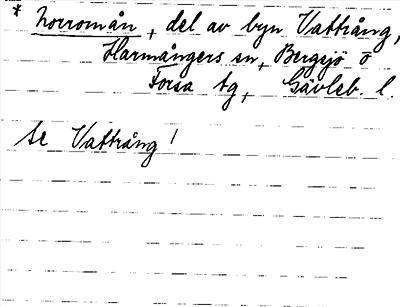 * Norromån, del av byn Vattrång,
Harmångers sn, Bergsjö o
Forsa tg, Gävleb. l.
Se Vattrång!